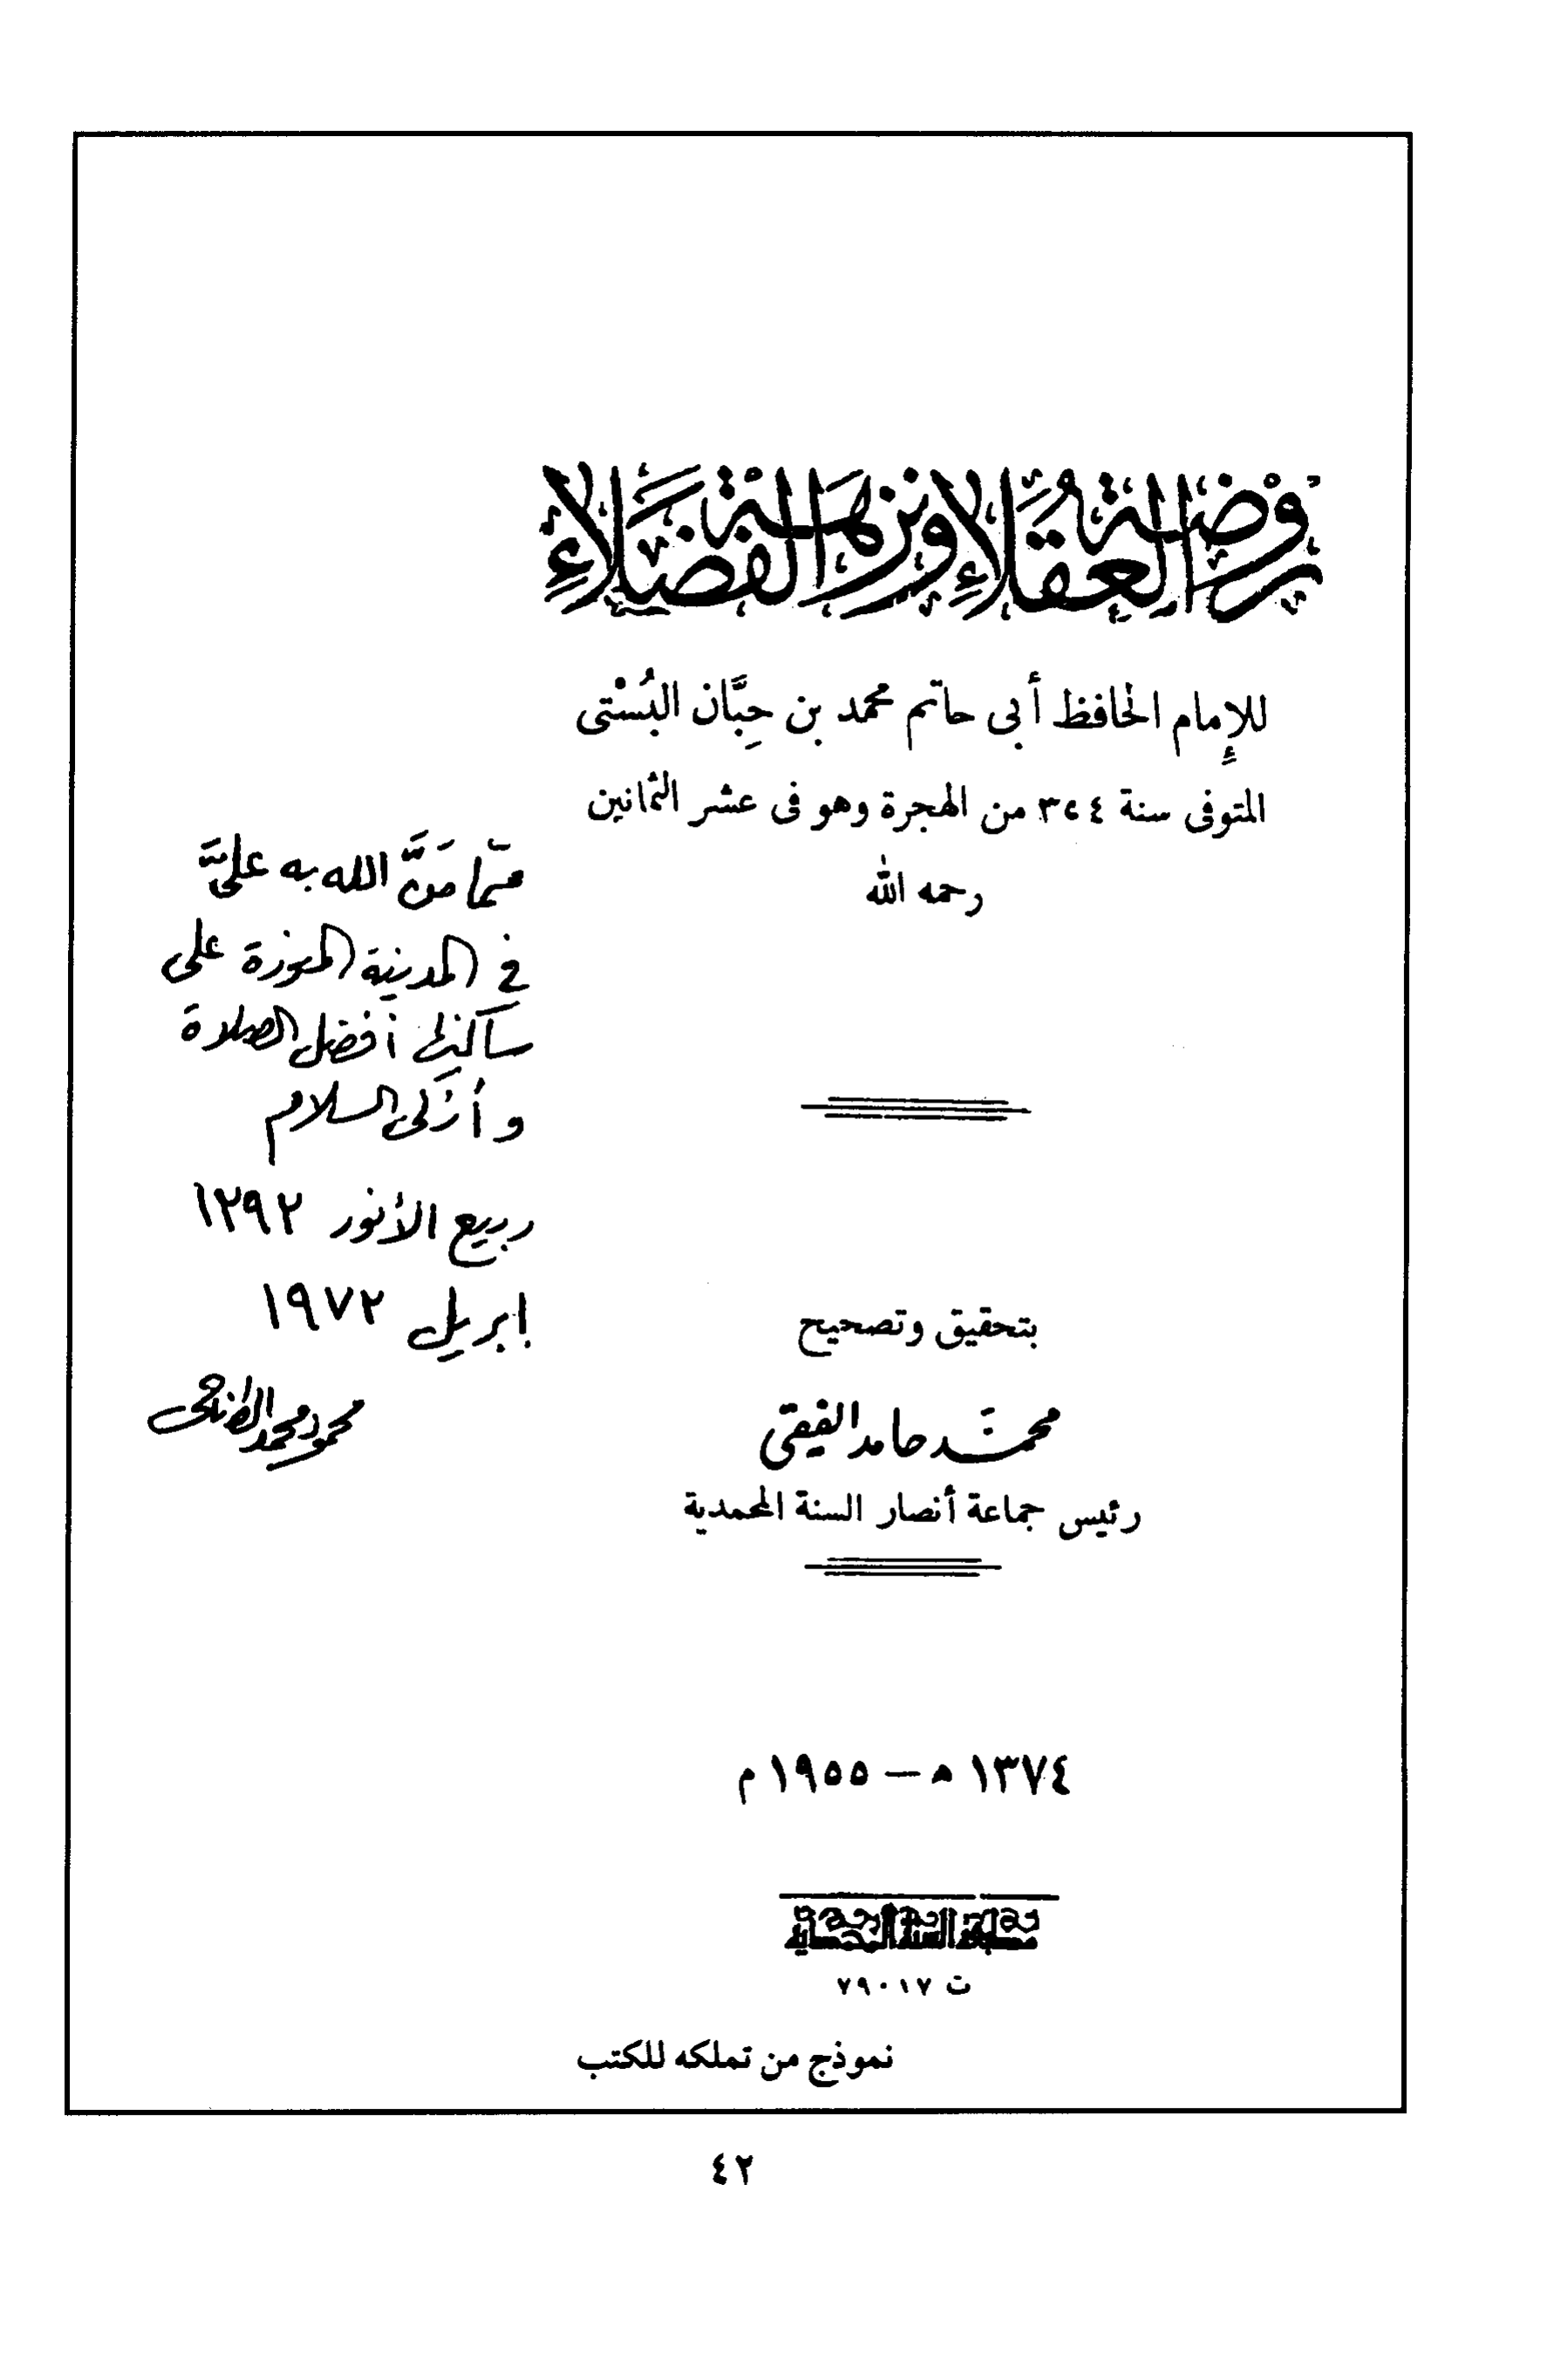 روضة العقلاء ونزهة الفضلاء
للإمام الحافظ أبى حاتم محمد بن حِبَّان البُسْتى
المتوفى سنة ٣٥٤ من الهجرة وهو فى عشر الثمانين
رحمه الله
ممّا مَنَّ الله به عليَّ
في المدينة المنورة على
ساكنها أفضل الصلاة
وأزكى السلام
ربيع الأنور ١٣٩٢
إبريل ١٩٧٢
محمود محمد الطناحى
بتحقيق وتصحيح
محمد حامد الفيقى
رئيس جماعة أنصار السنة المحمدية
١٣٧٤ ه — ١٩٥٥ م
مطبعة السنة المحمدية
ت ٧٩٠١٧
نموذج من تملكه للكتب
٤٢